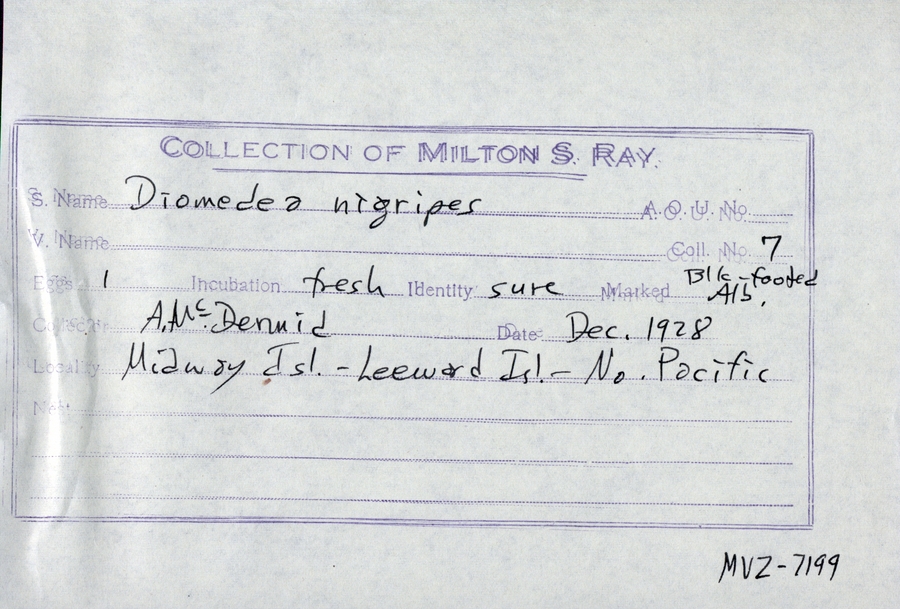 COLLECTION OF MILTON S. RAY.
S. Name Diomedea nigripes A.O.U. No.
V. Name Coll. No. 7
Eggs 1 Incubation fresh Identity sure Marked Blk-footed Alb.
Collector A. McDermid Date Dec. 1928
Locality Midway Isl. - Leeward Isl. - No. Pacific
Nest
MVZ-7199